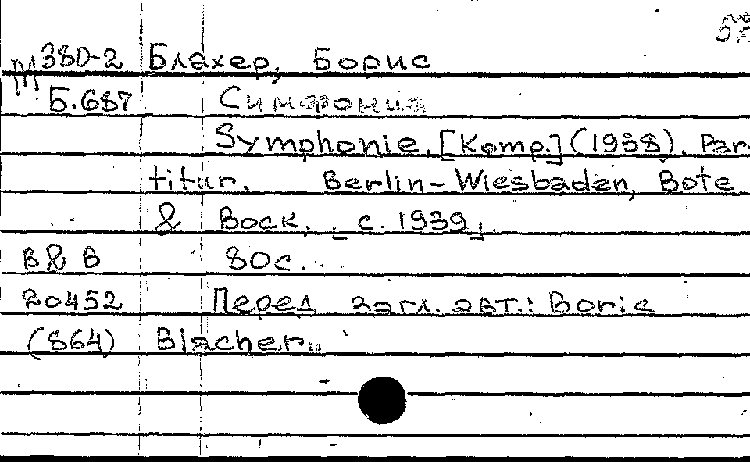 М 380-2 Блахер, Борис
Б.687 Симфония
Symphonie. [Komp.] (1938). Par-
titur. Berlin-Wiesbaden, Bote
& Bock, [c. 1939]
B & B 80с.
20452 Перед загл. авт.: Boris
(864) Blacher.